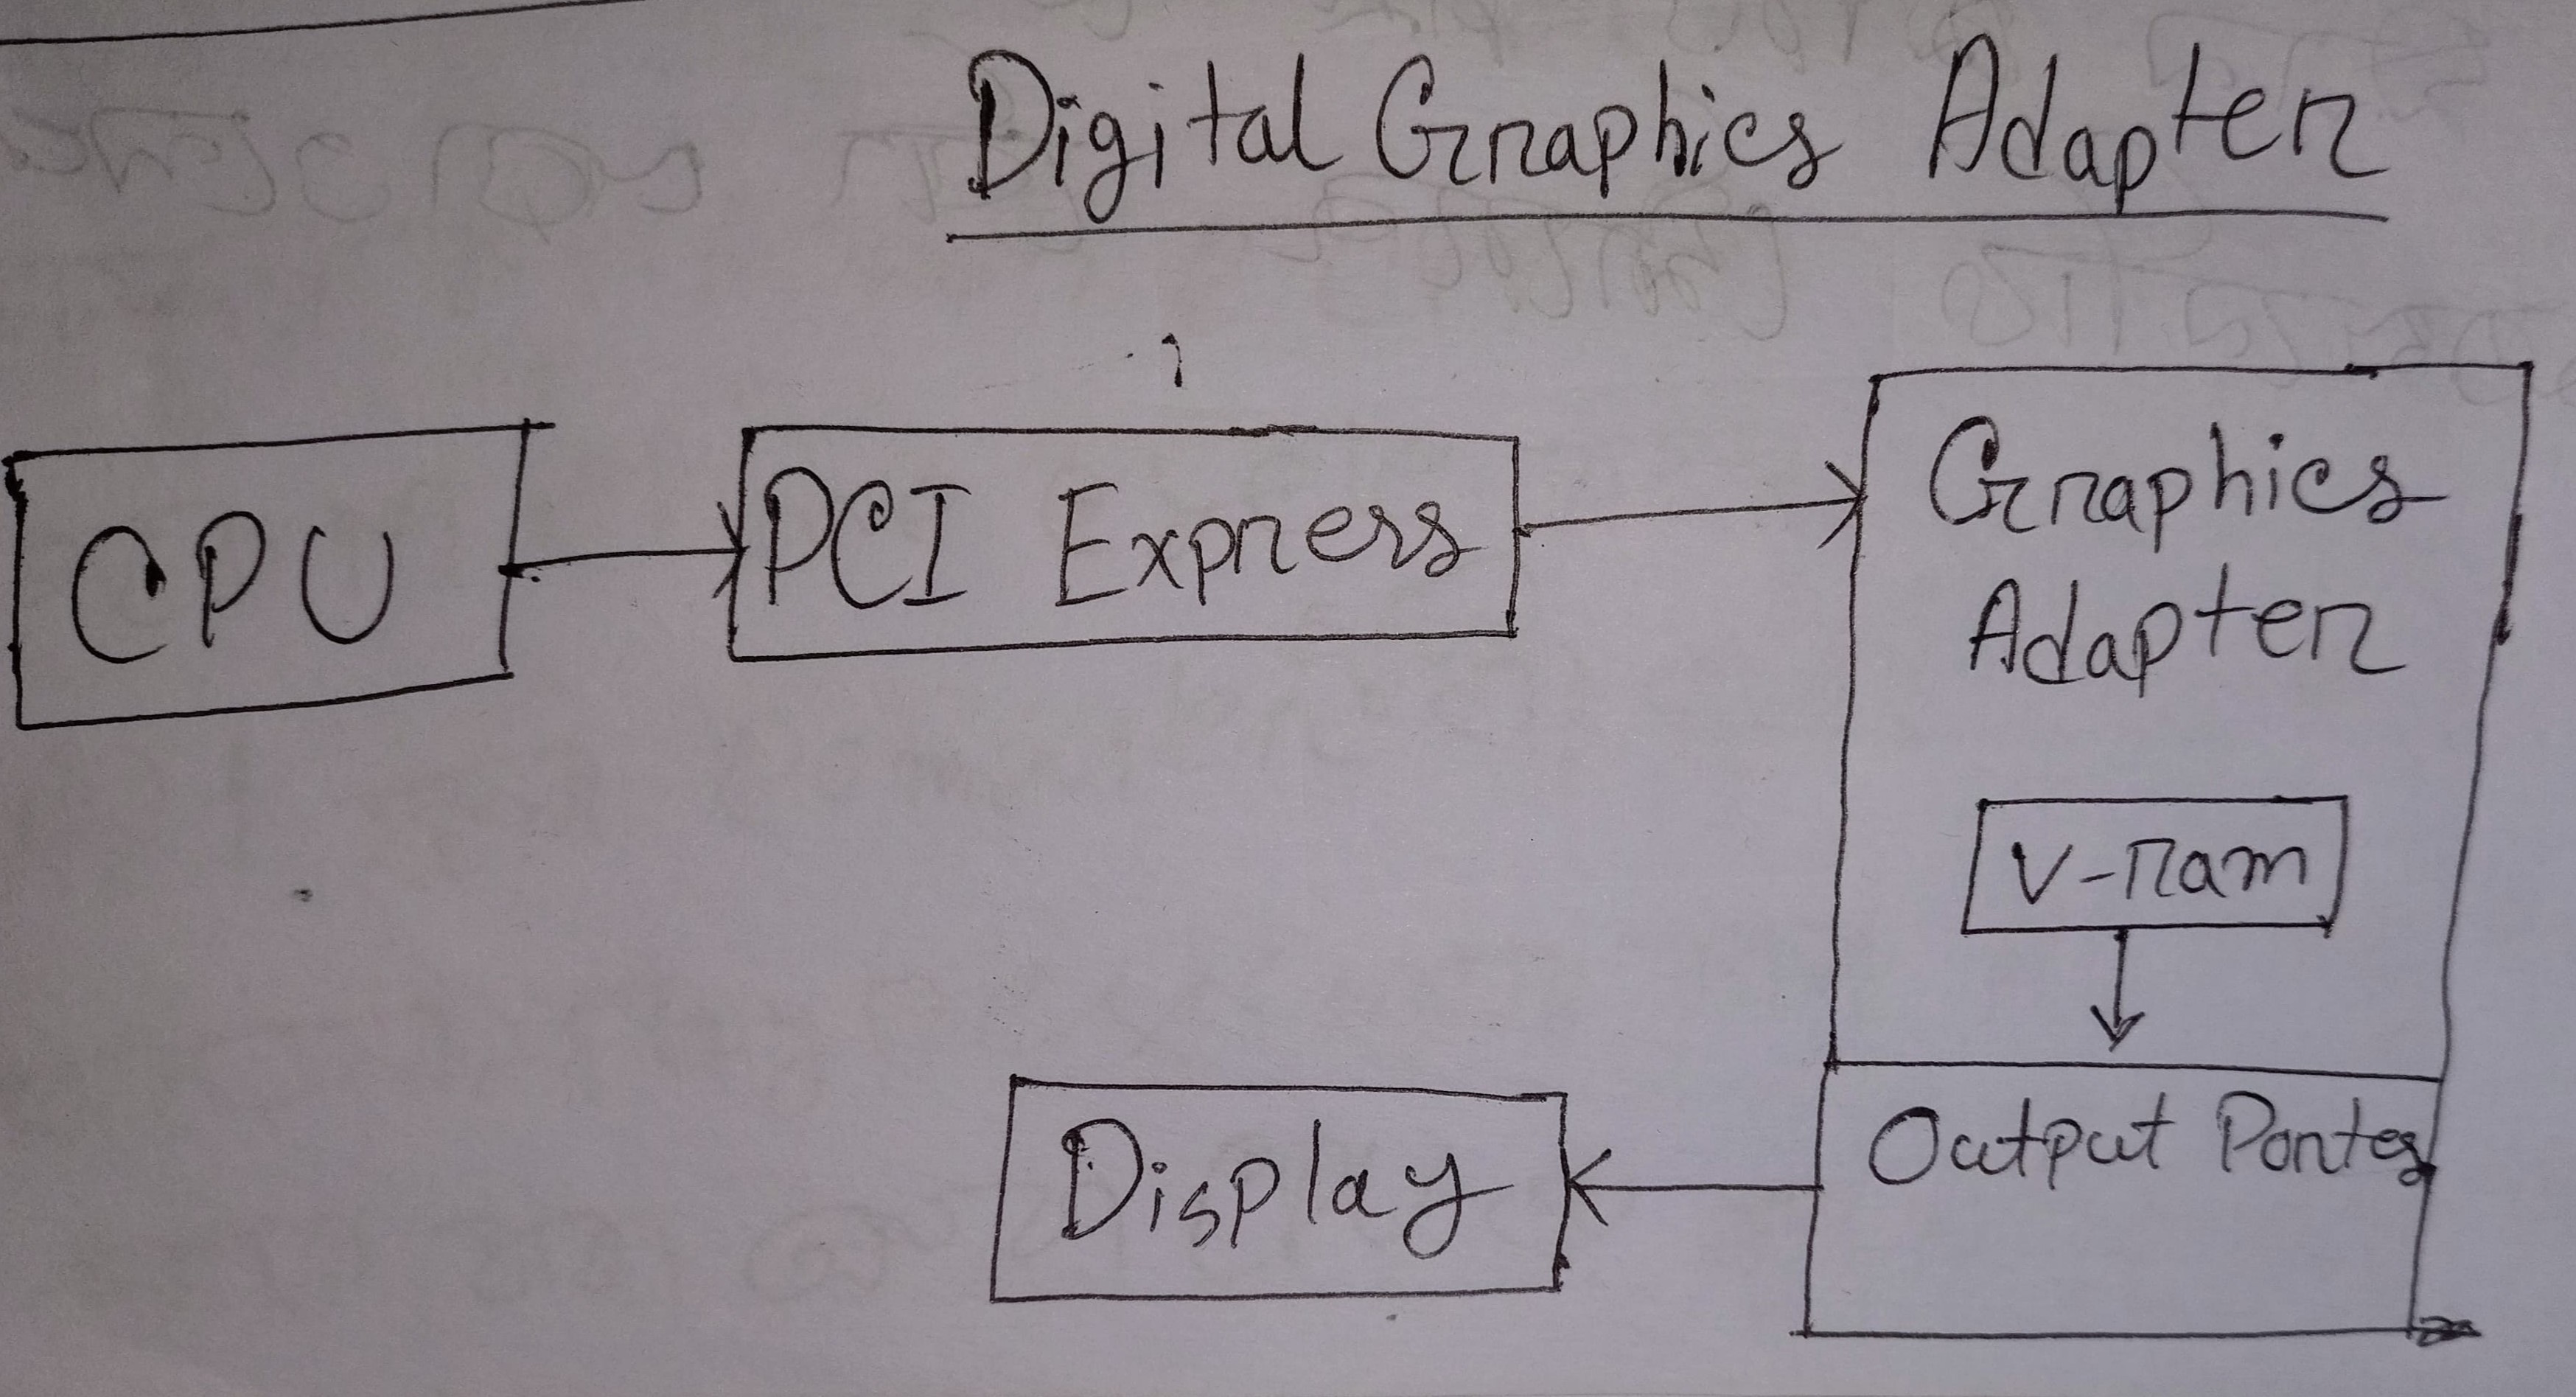 Digital Graphics Adapter
CPU
PCI Express
Graphics
Adapter
V-ram
Output Portes
Display